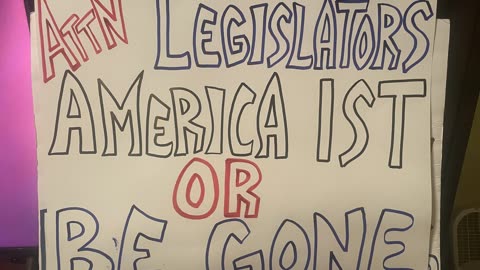 ATTN LEGISLATORS
AMERICA IST
OR
BE GONE